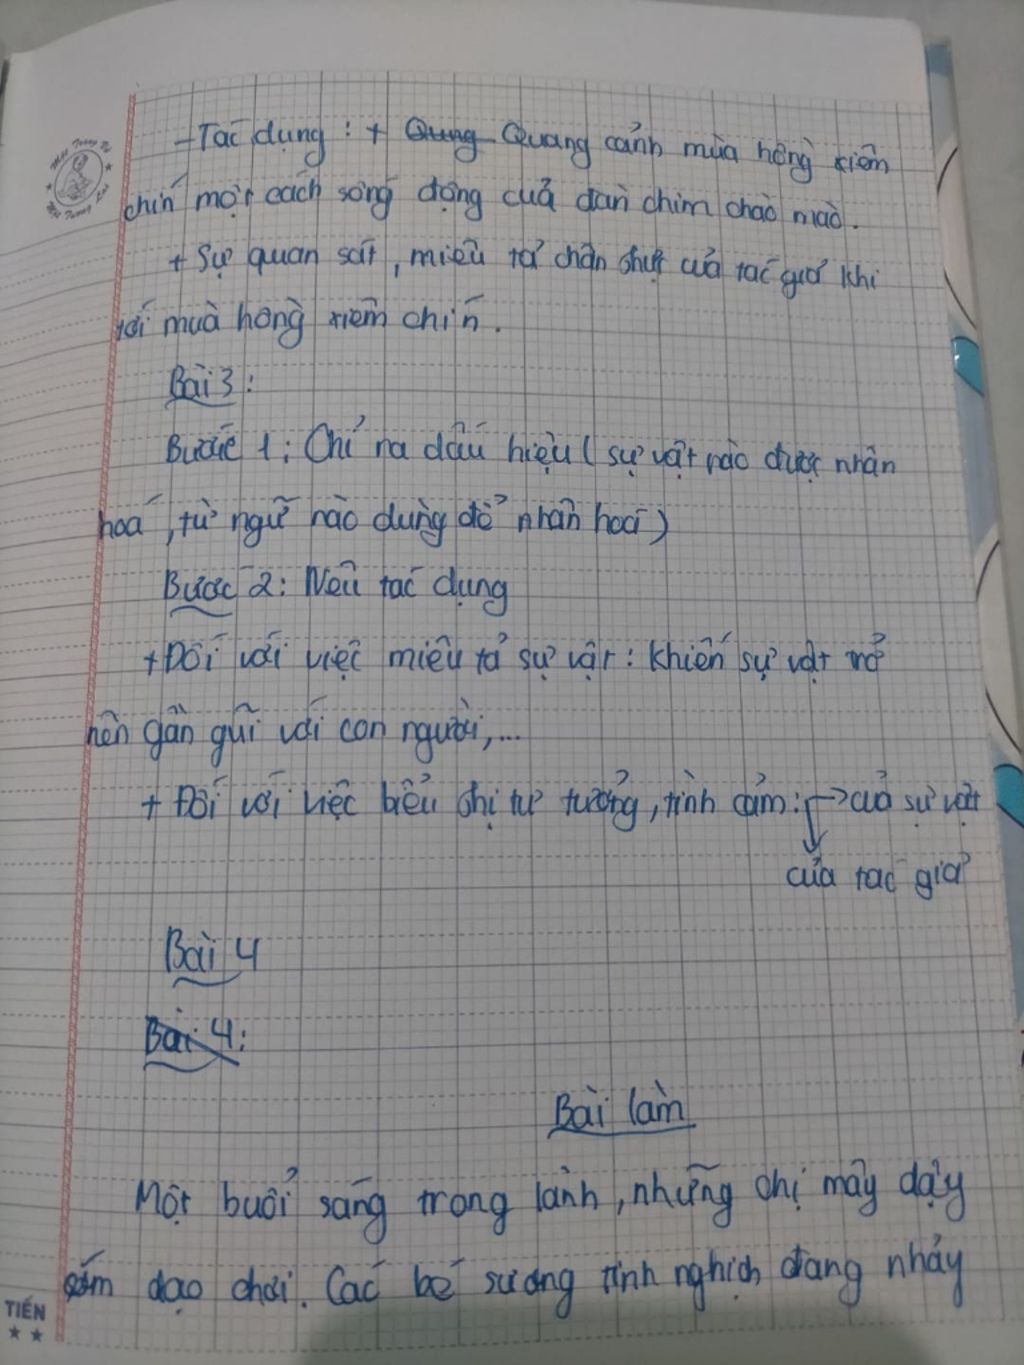 - Tác dụng : + Qung Quang cảnh mùa hồng xiêm
chín một cách sống động cuả đàn chim chào mào.
+ Sự quan sát, miêu tả chân thực cuả tác giả khi
tới muà hồng xiêm chín.
Bài 3:
Bước 1: Chỉ ra dấu hiệu ( sự vật nào được nhân
hoá, từ ngữ nào dùng để nhân hoá )
Bước 2: Nêu tác dụng
+ Đối với việc miêu tả sự vật: khiến sự vật trở
nên gần gũi với con người,...
+ Đối với việc biểu thị tư tưởng, tình cảm: → cuả sự vật
của tác giả
Bài 4
Bài 4:
Bài làm
Một buổi sáng trong lành, những chị mây dậy
sớm dạo chơi. Các bé sương tinh nghịch đang nhảy
TIẾN